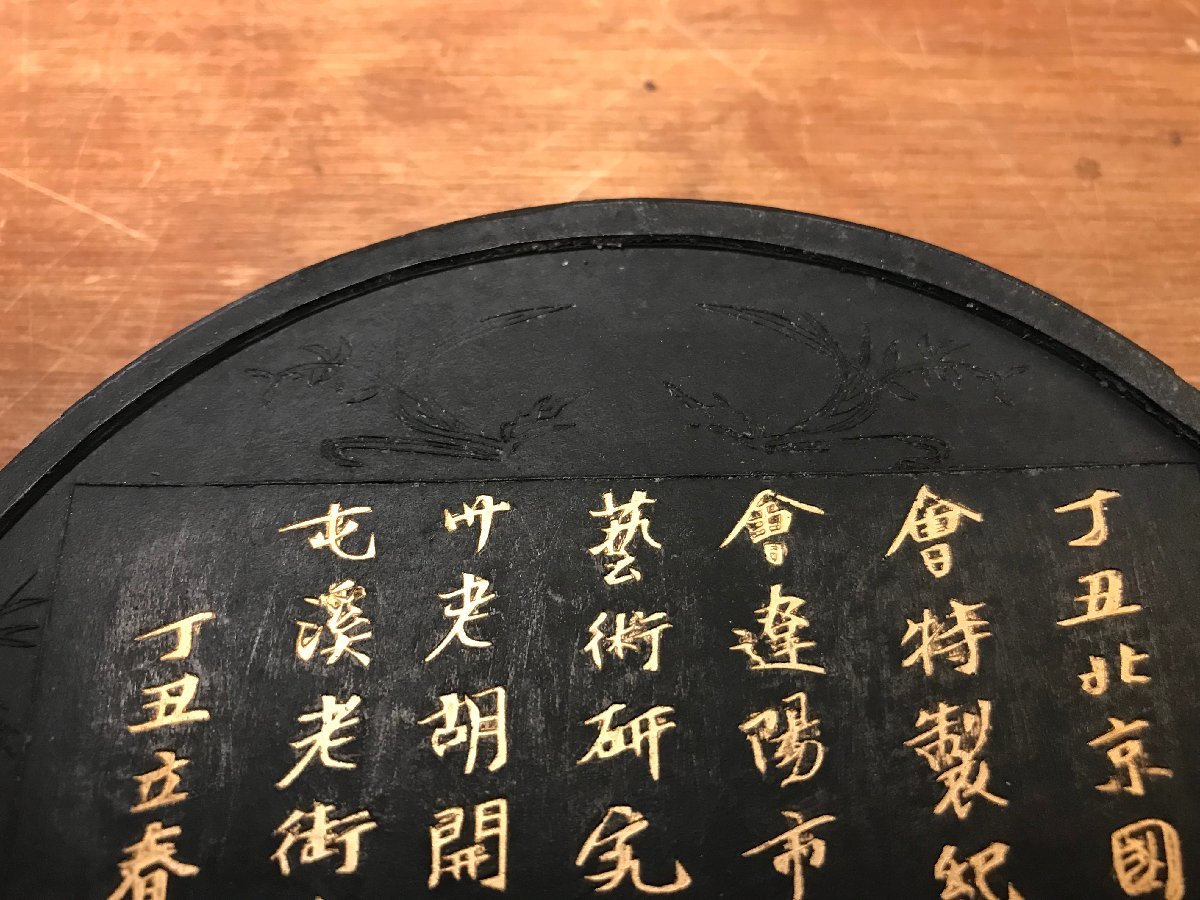 丁丑北京國
會特製紀
會達陽市
藝術研究
州老胡開
屯溪老街
丁丑立春